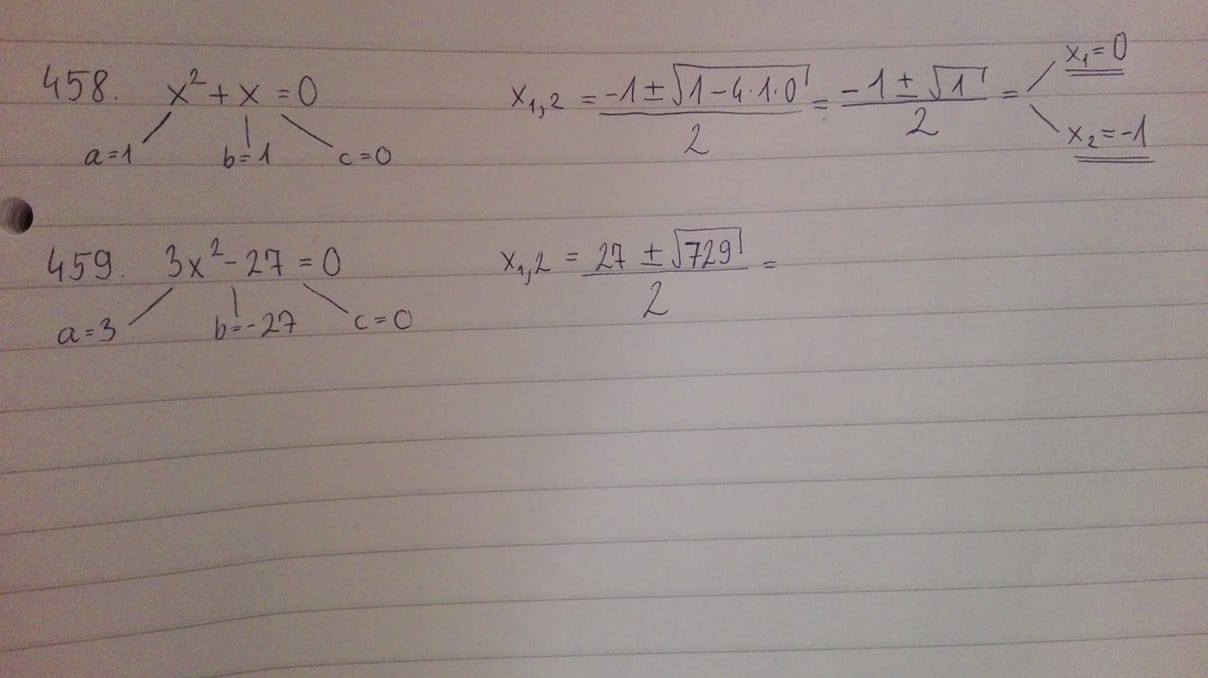 458. x² + x = 0
a=1 b=1 c=0
x₁,₂ = (-1 ± √(1-4·1·0))/2 = (-1 ± √1)/2 =
x₁=0
x₂=-1
459. 3x² - 27 = 0
a=3 b=-27 c=0
x₁,₂ = (27 ± √729)/2 =